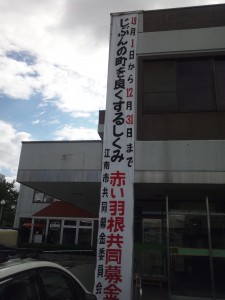 10月1日から12月31日まで
じぶんの町を良くするしくみ
赤い羽根共同募金
江南市共同募金委員会